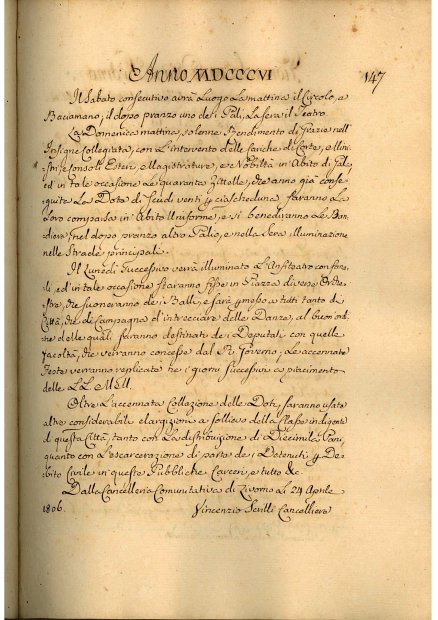 Anno MDCCCVI
147
Il Sabato consecutivo avrà Luogo La mattina il Circolo, e
Baciamano, il dopo pranzo uno dei Palj, La sera il Teatro
La Domenica mattina, solenne Rendimento di Grazie nell'
Insigne Collegiata, con L'intervento delle Cariche di Corte, e Mini-
stri, e Consoli Esteri, e Magistrature, e Nobiltà in Abito di Gala,
ed in tale occasione Le quaranta Zittelle, che anno già conse-
guite La Dote di Scudi venti p ciascheduna, faranno La
Loro comparsa in Abito Uniforme, e si benediranno Le Ban-
diere, nel dopo pranzo altro Palio, e nella Sera illuminazione
nelle Strade principali.
Il Lunedì Successivo verrà illuminato L'Anfiteatro con fana-
li, ed in tale occasione staranno fisse in Piazza diverse Orche-
stre, che suoneranno dei Balli, e sarà pmesso a tutti tanto di
Città, che di Campagna d'intrecciare delle Danze, al buon ord-
ine delle quali saranno destinati dei Deputati con quelle
facoltà, che verranno concesse dal R. Governo, Le accennate
Feste verranno replicate nei giorni successivi a piacimento
delle LL. MM.
Oltre L'accennata Collazione delle Doti, saranno usate
altre considerabili elargizioni a sollievo della Classe indigente
di questa Città, tanto con La distribuzione di Diecimila Pani,
quanto con L'escarcerazione di parte dei Detenuti p De-
bito Civile in queste Pubbliche Carceri, e tutto &c.
Dalla Cancelleria Comunitativa di Livorno Li 24 Aprile
1806.
Vincenzio Sevilli Cancelliere